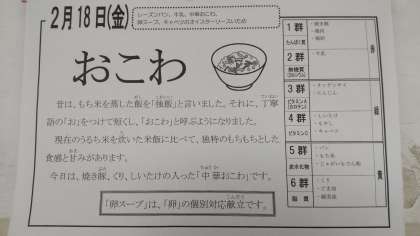 2月18日(金)
レーズンパン、牛乳、中華おこわ、
卵スープ、キャベツのオイスターソースいため
おこわ
昔は、もち米を蒸した飯を「強飯」と言いました。それに、丁寧
語の「お」をつけて短くし、「おこわ」と呼ぶようになりました。
現在のうるち米を炊いた米飯に比べて、独特のもちもちとした
食感と甘みがあります。
今日は、焼き豚、くり、しいたけの入った「中華おこわ」です。
「卵スープ」は、「卵」の個別対応献立です。
1群
たんぱく質
・焼き豚
・鶏肉
2群
無機質
(カルシウム)
・牛乳
3群
ビタミンA
(カロテン)
・チンゲンサイ
・にんじん
4群
ビタミンC
・しいたけ
・もやし
・キャベツ
5群
炭水化物
・パン
・もち米
・じゃがいもでん粉
6群
脂質
・くり
・ごま油
赤
緑
黄